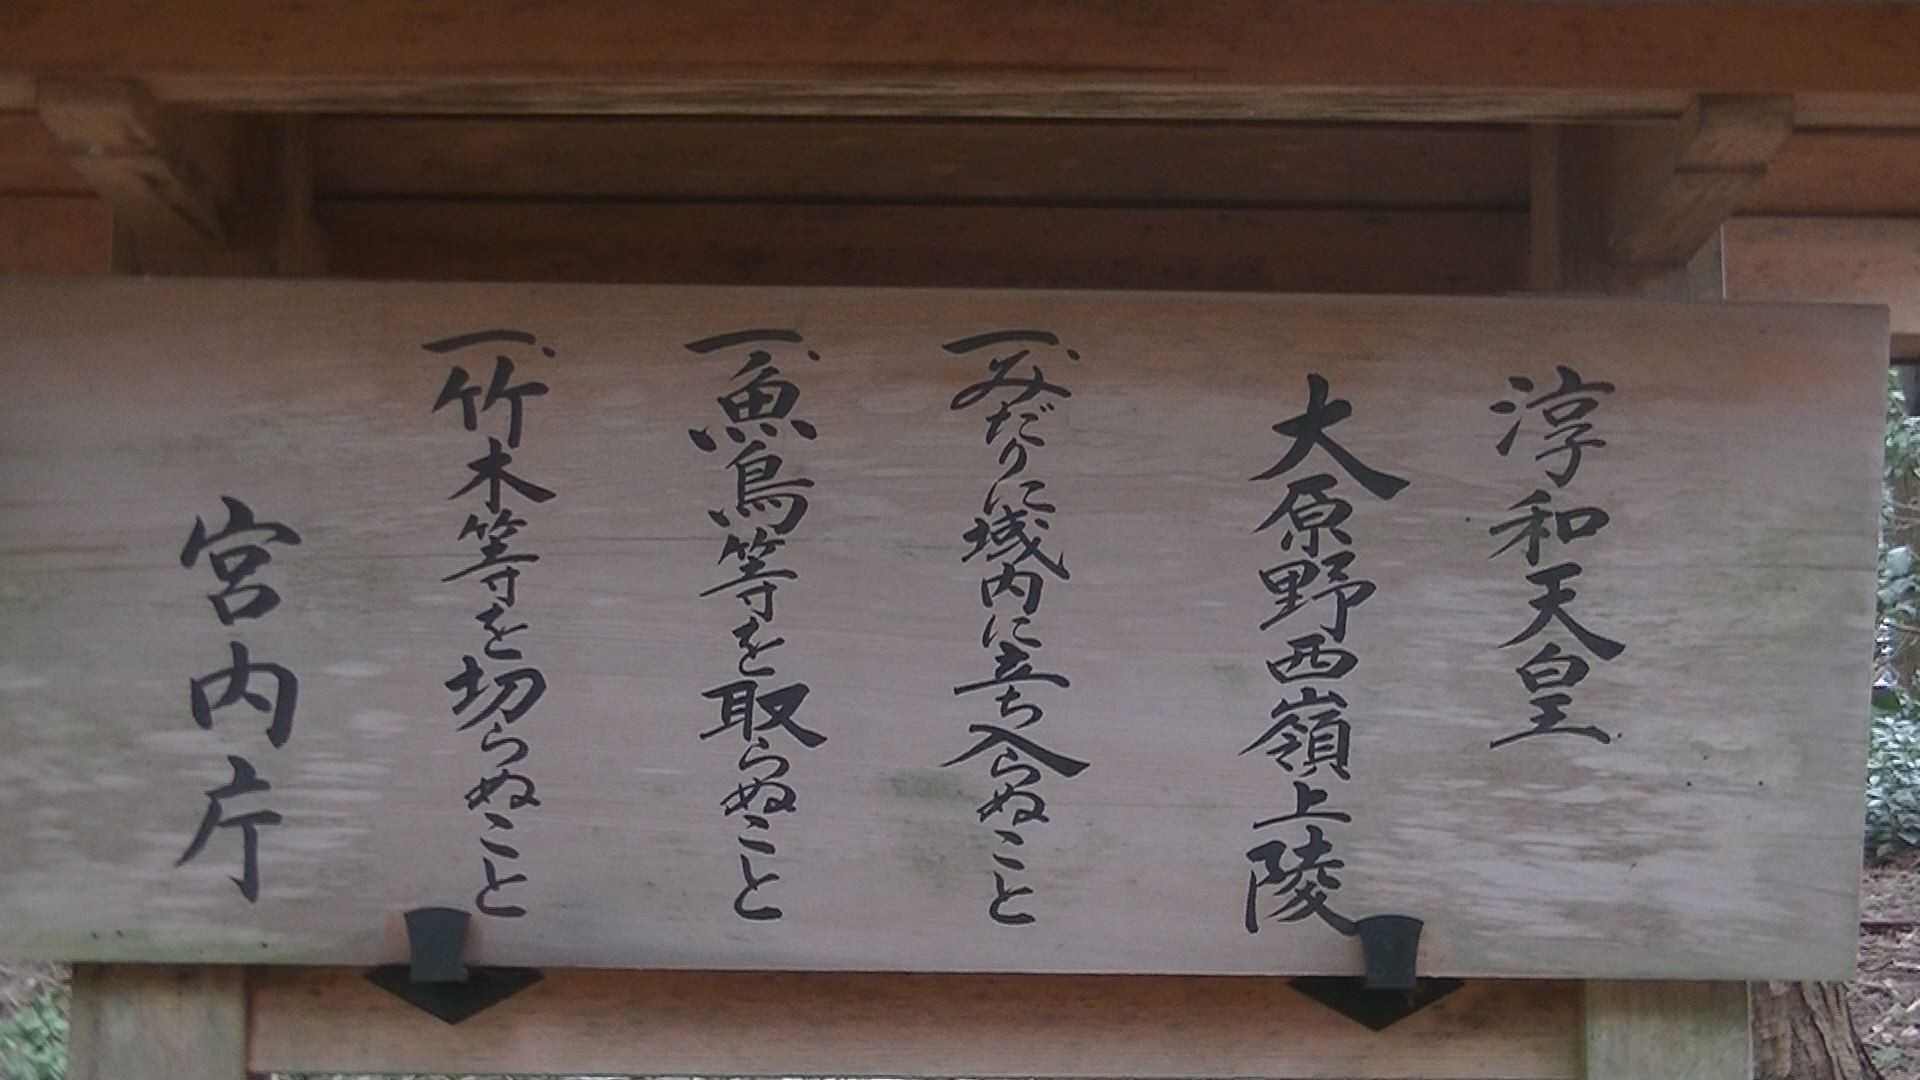 淳和天皇
大原野西嶺上陵
一、みだりに域内に立ち入らぬこと
一、魚鳥等を取らぬこと
一、竹木等を切らぬこと
宮内庁